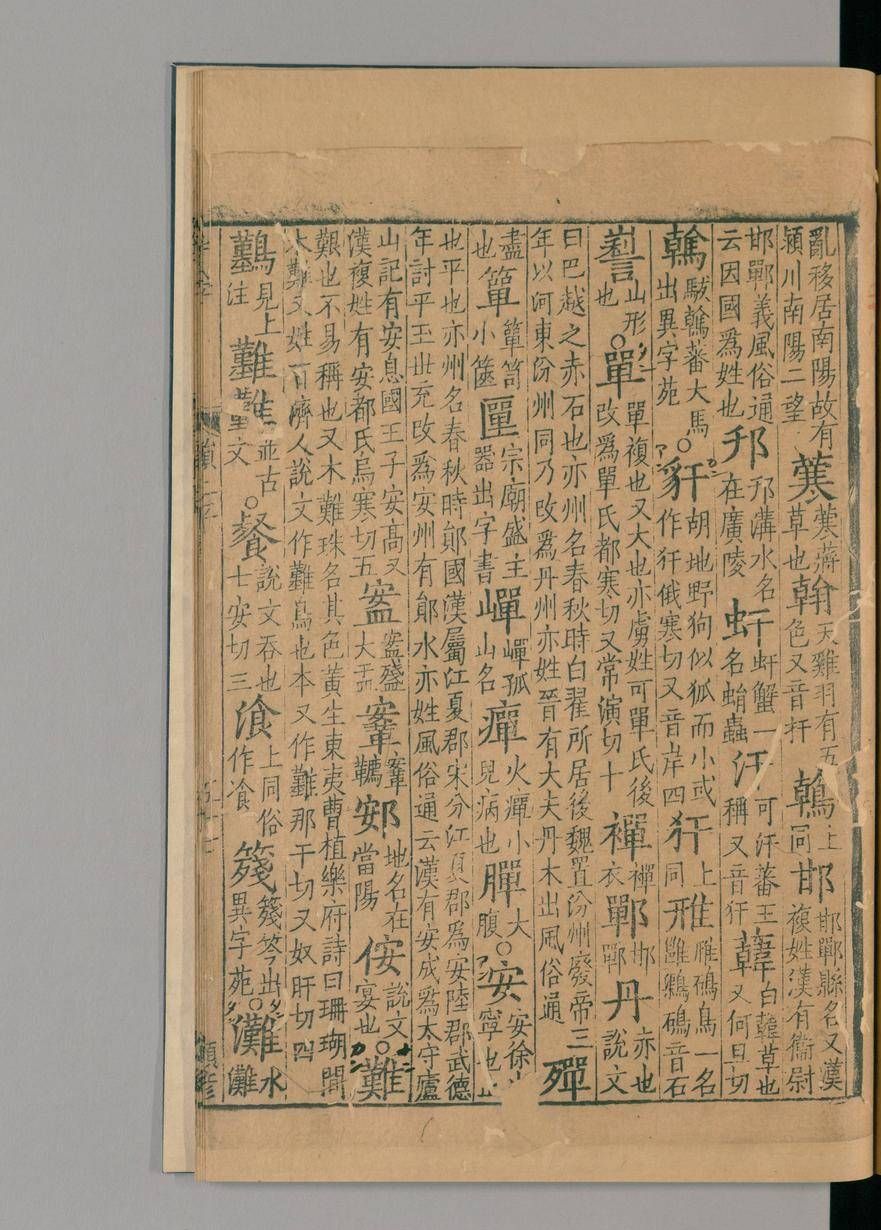 亂移居南陽故有潁川南陽二望 𦼮 𦼮薢草也 翰 天雞羽有五色又音扞 鶾 上同 邯 邯鄲縣名又漢複姓漢有衞尉
邯鄲義風俗通云因國爲姓也 邗 邗溝水名在廣陵 虷 虷蟹一名蛣蟲 汗 可汗蕃王稱又音汗 韓 白韓草也又何旦切
馱䮧蕃大馬出異字苑 ○豻 胡地野狗似狐而小或作犴俄寒切又音岸四 犴 上同 雃 雃鵖鳥一名雝鶏鵖音石
山形也 ○單 單複也又大也亦虜姓可單氏後改爲單氏都寒切又常演切十 襌 襌衣 鄲 邯鄲 丹 赤也說文
曰巴越之赤石也亦州名春秋時白翟所居後魏置汾州廢帝三年以河東汾州同乃改爲丹州亦姓晉有大夫丹木出風俗通 殫
盡也 簞 簞笥小篋 匰 宗廟盛主器出字書 嶂 嶂孤山名 癉 火癉小兒病也 膻 大腹 ○安 安徐也寧也止
也平也亦州名春秋時鄖國漢屬江夏郡宋分江夏郡爲安陸郡武德年討平王世充改爲安州有鄖水亦姓風俗通云漢有安成爲太守廬
山記有安息國王子安高又漢複姓有安都氏烏寒切五 盎 盎盛大盂 鞌 鞌韉 䢿 地名在當陽 侒 說文宴也 ○難
艱也不易稱也又木難珠名其色黃生東夷曹植樂府詩曰珊瑚間木難又姓百濟人說文作鸛鳥也本又作難那干切又奴肝切四
鸛 見上注 難 並古文 ○餐 說文吞也七安切三 湌 上同俗作飡 䉔 䉔䇧出異字苑 ○灘 水灘